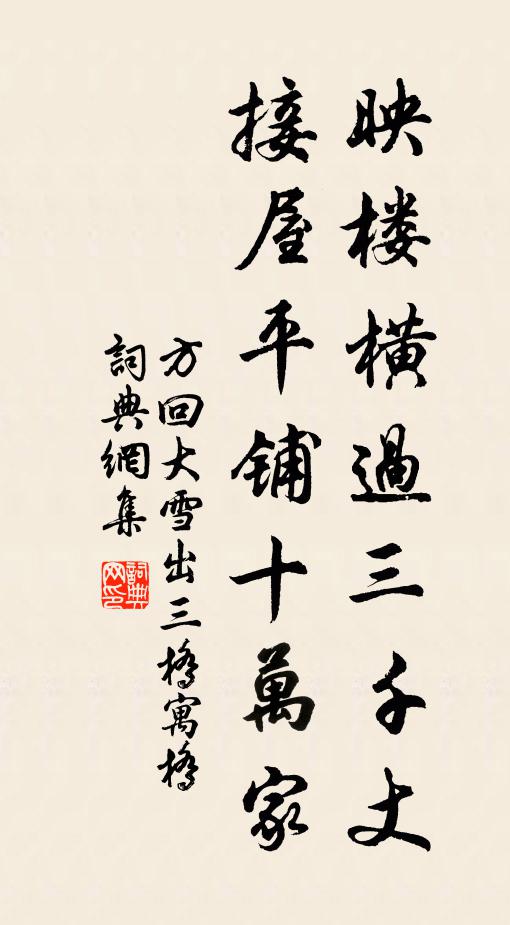 映楼橫過三千丈
接屋平鋪十萬家
方回大雪出三橋寓橋
詞典網集
詞典网印